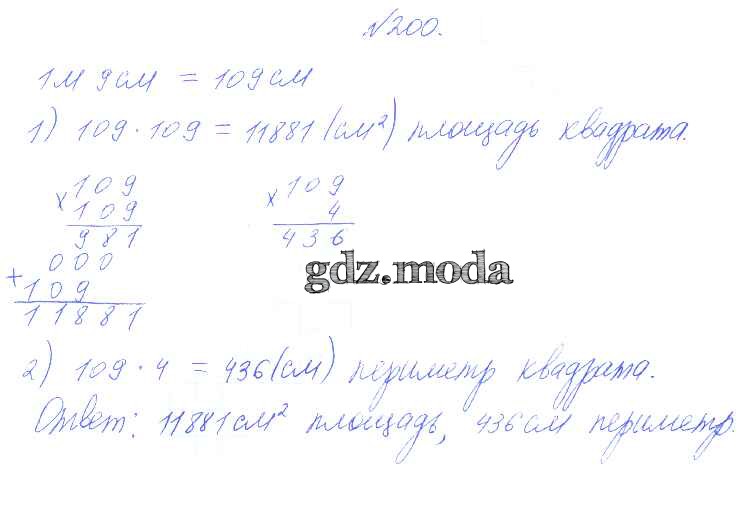 №200.
1м 9см = 109см
1) 109 · 109 = 11881 (см²) площадь квадрата.
× 109
109
981
000
+ 109
11881
× 109
4
436
gdz.moda
2) 109 · 4 = 436 (см) периметр квадрата.
Ответ: 11881см² площадь, 436см периметр.